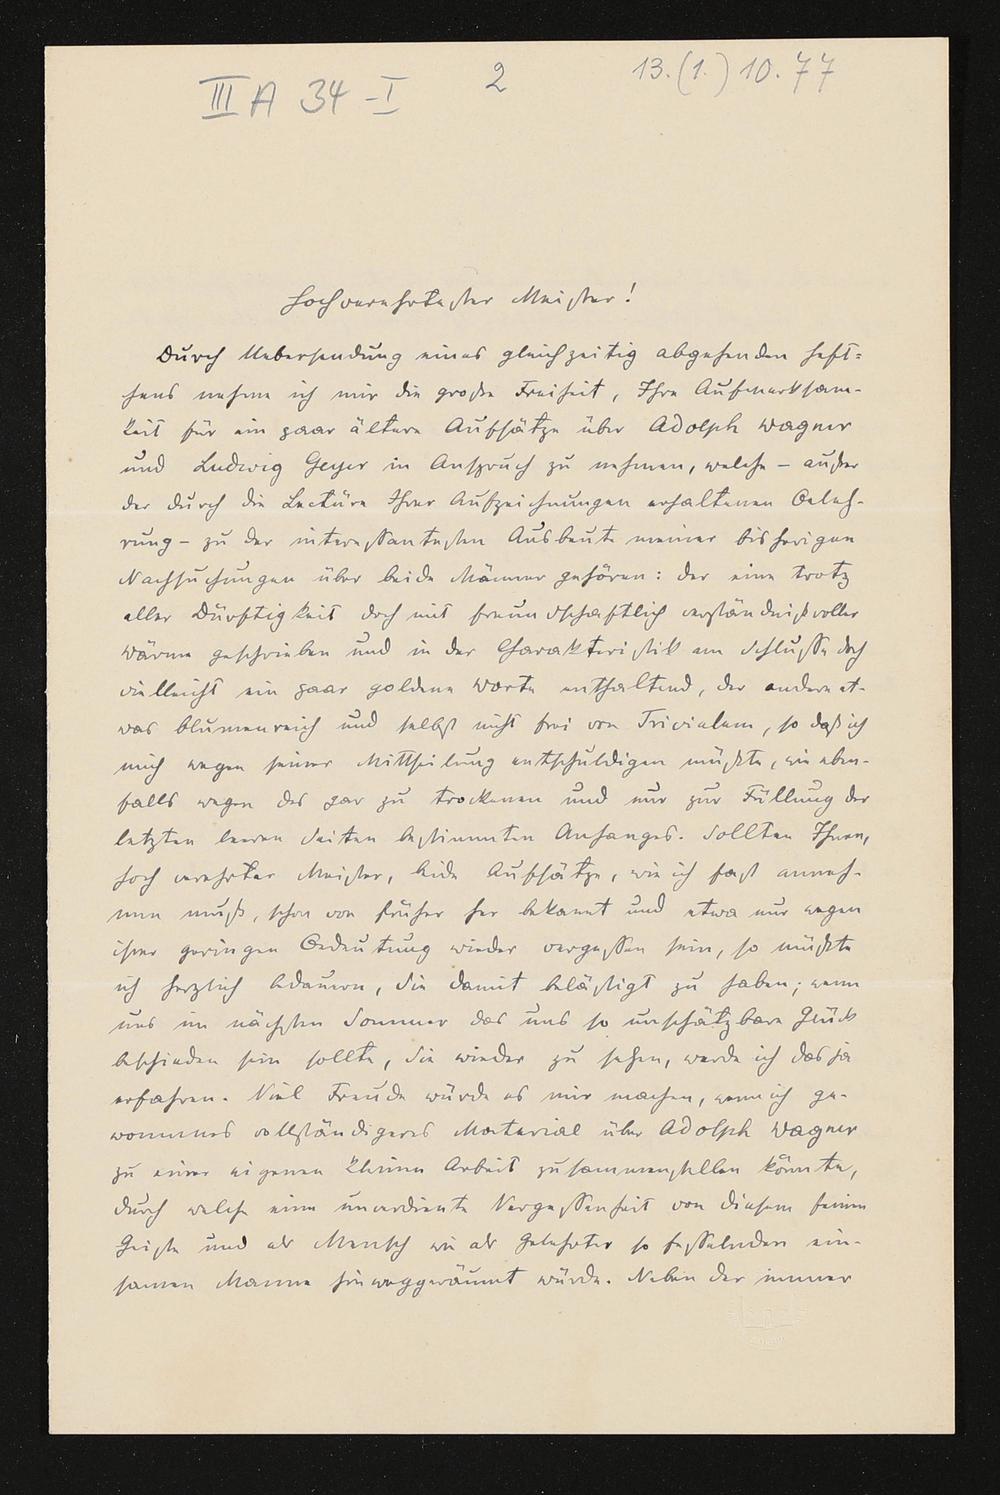 III A 34 - I
2
13.(1.) 10. 77
Hochverehrtester Meister!
Durch Uebersendung eines gleichzeitig abgehenden Heft-
chens nehme ich mir die große Freiheit, Ihre Aufmerksam-
keit für ein paar ältere Aufsätze über Adolph Wagner
und Ludwig Geyer in Anspruch zu nehmen, welche – außer
der durch die Lectüre Ihrer Aufzeichnungen erhaltenen Beleh-
rung – zu der interessantesten Ausbeute meiner bisherigen
Nachsuchungen über beide Männer gehören: der eine trotz
aller Dürftigkeit doch mit freundschaftlich verständnißvoller
Wärme geschrieben und in der Charakteristik am Schlusse doch
vielleicht ein paar goldene Worte enthaltend, der andere et-
was blumenreich und selbst nicht frei von Trivialem, so daß ich
mich wegen seiner Mittheilung entschuldigen müßte, wie eben-
falls wegen des gar zu trockenen und nur zur Füllung der
letzten leeren Seiten bestimmten Anhanges. Sollten Ihnen,
hoch verehrter Meister, beide Aufsätze, wie ich fast anneh-
men muß, schon von früher her bekannt und etwa nur wegen
ihrer geringen Bedeutung wieder vergessen sein, so müßte
ich herzlich bedauern, Sie damit belästigt zu haben; wenn
uns im nächsten Sommer das uns so unschätzbare Glück
beschieden sein sollte, Sie wieder zu sehen, werde ich das ja
erfahren. Viel Freude würde es mir machen, wenn ich ge-
wonnenes vollständigeres Material über Adolph Wagner
zu einer eigenen kleinen Arbeit zusammenstellen könnte,
durch welche eine unverdiente Vergessenheit von diesem feinen
Geiste und als Mensch wie als Gelehrter so fesselnden ein-
samen Manne hinweggeräumt würde. Neben der immer